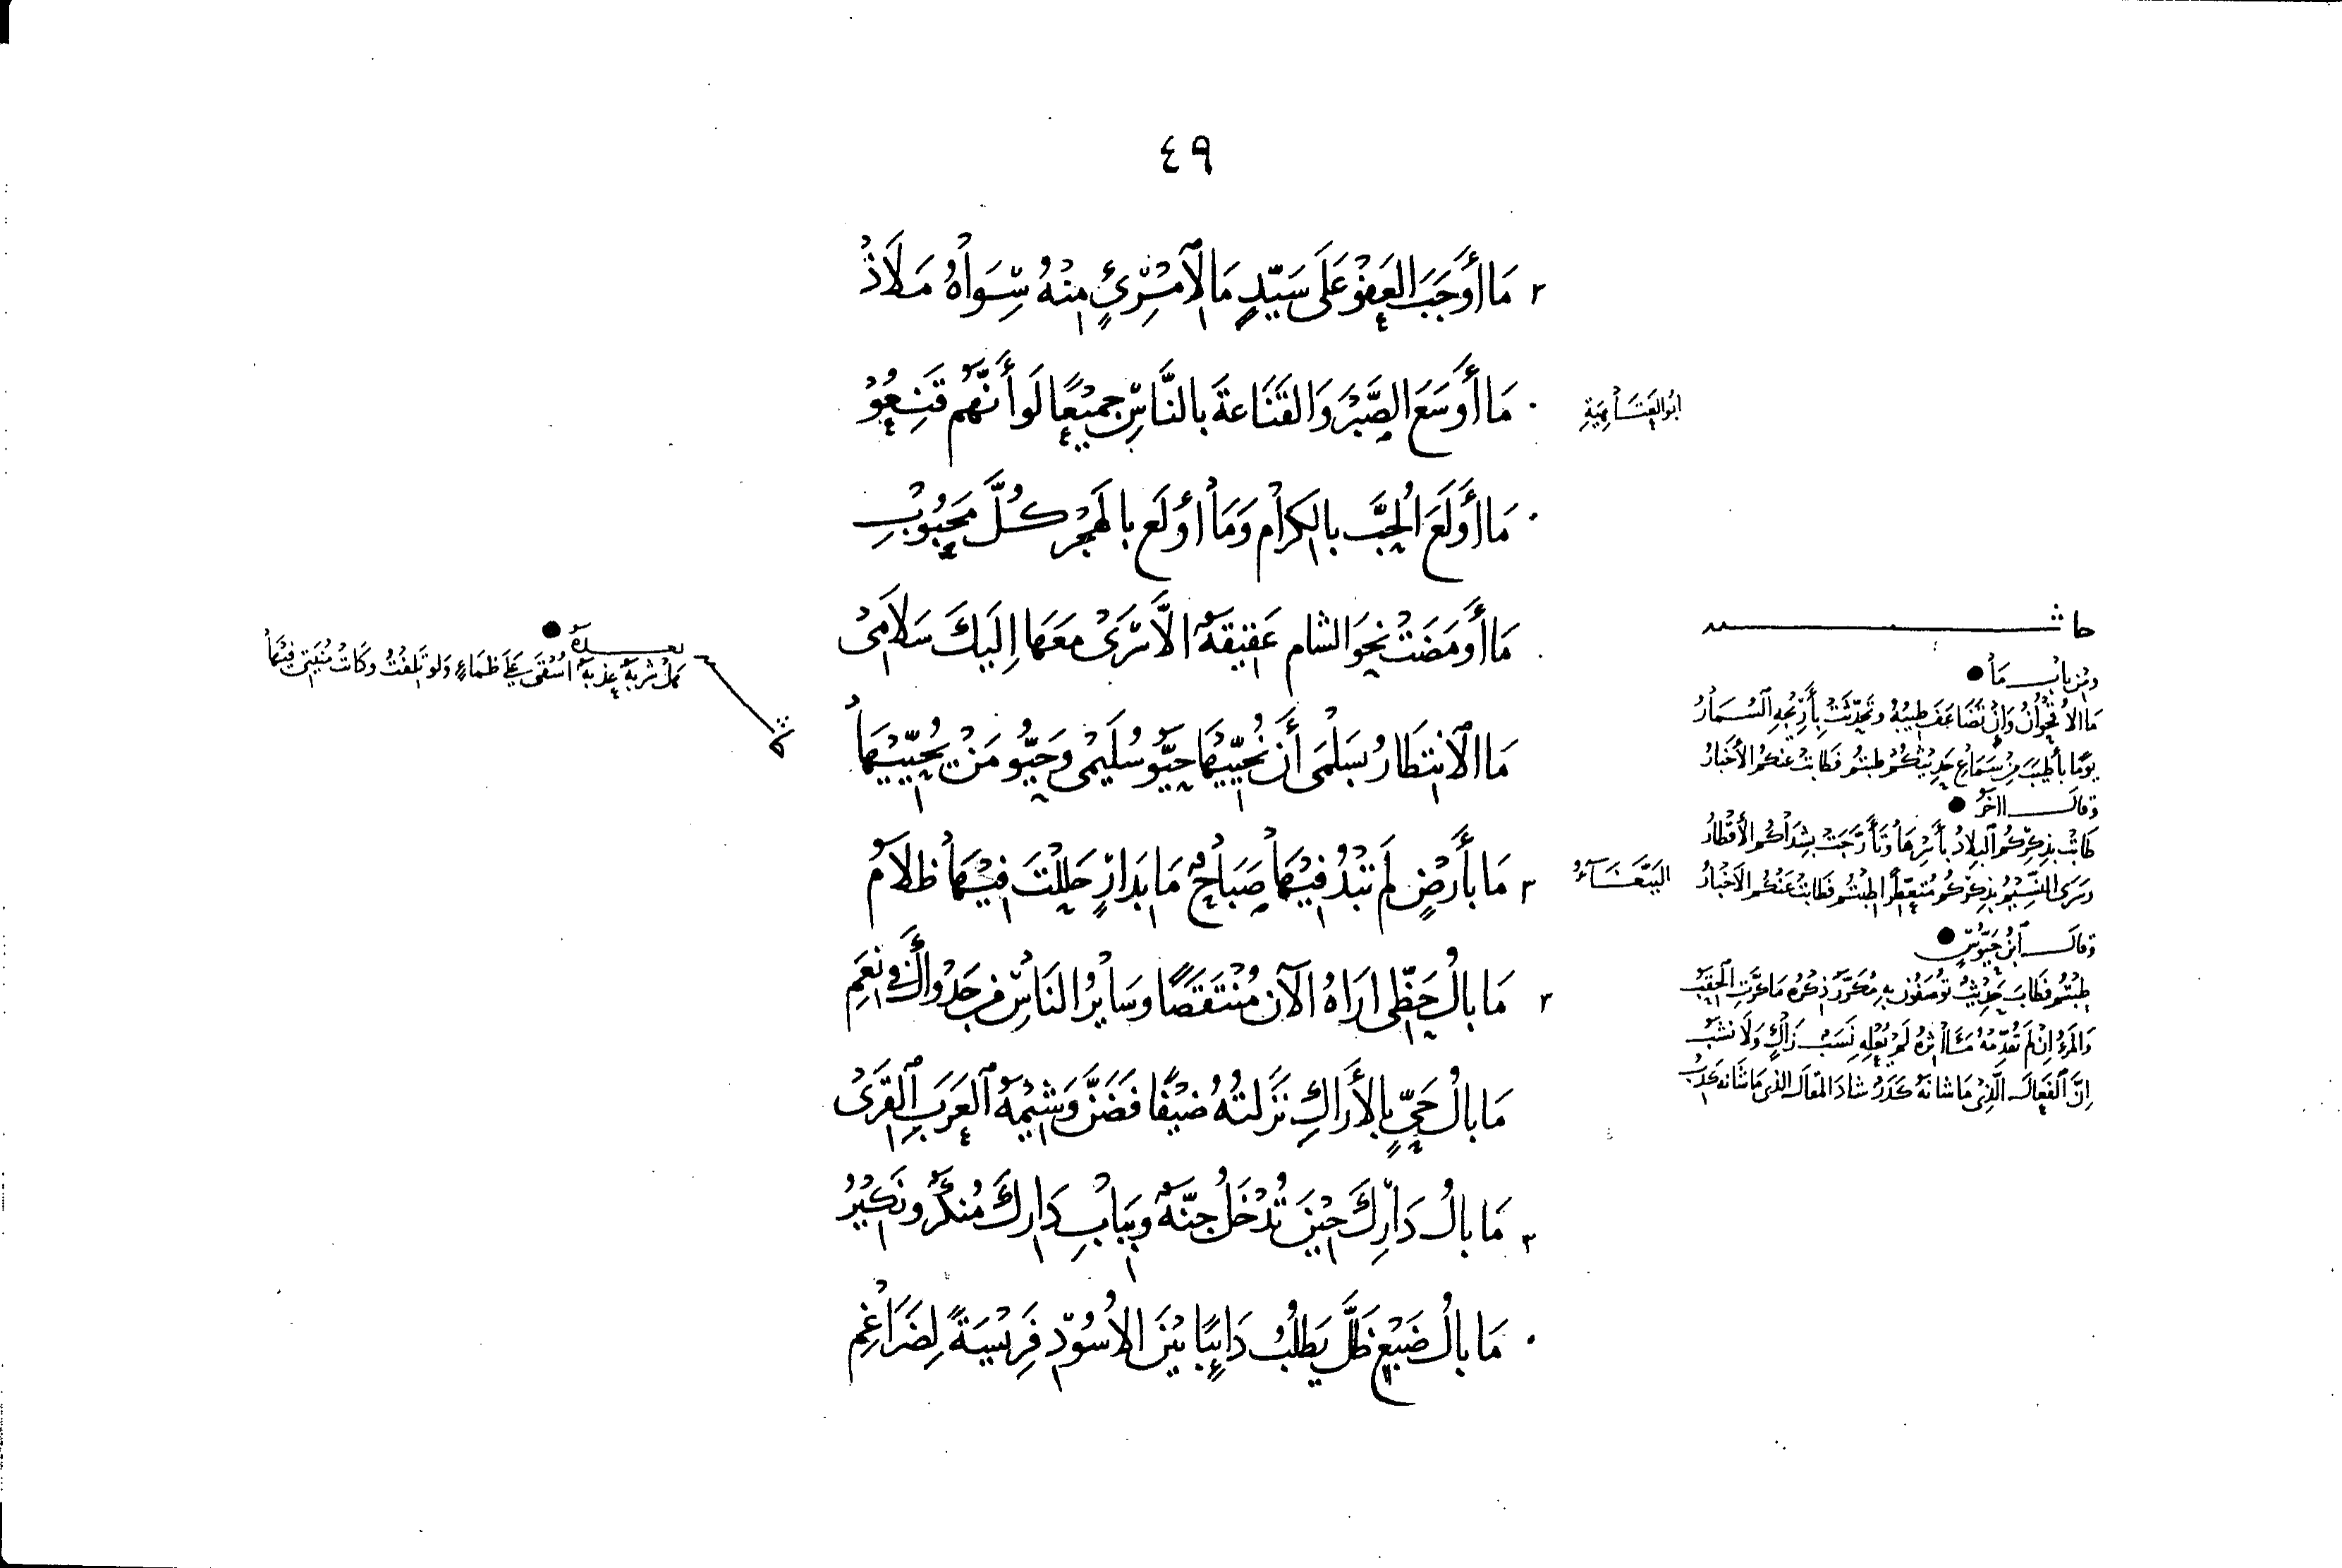 ٤٩
٢ مَا أَوْجَبَ العَفْوَ عَلَى سَيِّدٍ مَا لِامْرِئٍ مِنْهُ سِوَاهُ مَلَاذُ
أبو العتاهية
مَا أَوْسَعَ الصَّبْرَ وَالقَنَاعَةَ بالنَّاسِ جَمِيْعًا لَوْ أَنَّهُم قَنِعُوْ
مَا أَوْلَعَ الحُبَّ بالكِرَامِ وَمَا أولَعَ بالهَجْرِ كُلَّ مَحْبُوْبِ
مَا أَوْمَضَتْ نَحْوَ الشام عَقِيقَةٌ الَّا سَرَى مَعَهَا إِلَيكَ سَلَامِيْ
مَا الانْتِظَارُ بسَلْمَى أَن نُحَيِّيْهَا حَيُّو سُلَيْمَى وَحَيُّو مَنْ يُحَيِّيْهَا
البَبَّغَاءُ
٣ مَا بأَرْضٍ لَم تَبْدُ فِيْهَا صَبَاحٌ مَا بِدَارٍ حَلَلْتَ فِيْهَا ظَلَامُ
٢ مَا بالُ حَظِّى ارَاهُ الآنَ مُنْتَقَصًا وسَايرُ النَاسِ من جَدْوَاكَ في نِعَمِ
مَا بالُ حَيٍّ بالأَرَاكِ نَزَلتُهُ ضَيْفًا فَضَنَّ وَشِيْمَةُ العَرَبِ القِرَىْ
٣ مَا بالُ دَارِكَ حِيْنَ تُدْخَلُ جَنَّةٌ وبِبَابِ دَارِكَ مُنْكَرٌ ونَكِيْرُ
مَا بالُ ضَبْعٍ ظَلَّ يَطلُبُ دَايِبًا بَيْنَ الاُسُوْدِ فَرِيْسَةً لِضَرَاغِمِ
حاشية
ومن باب مَا
مَا الاُقْحُوَانُ وَإِنْ تَضَاعَفَ طِيْبُهُ وتَحَدَّثَتْ بِأَرِيْجِهِ السُّمَّارُ
يَوْمًا بأَطْيَبَ مِنْ سَمَاعِ حَدِيْثِكُمْ طِبتُم فَطَابتْ عَنكم الأَخْبَارُ
وقال اآخَرُ
طَابَتْ بذِكْرِكُمُ البِلَادُ بأَسْرِهَا وتَأَرَّجَتْ بِشَذَاكُمُ الأَقْطَارُ
وسَرَى النَّسِيْمُ بذِكْرِكُمْ مُتَعَطِّرًا طِبْتُم فَطَابَتْ عَنْكُم الأَخْبَارُ
وقال ابْنُ حَيُّوْسٍ
طِبْتُمْ فَطَابَ حَدِيْثٌ تُوْصَفُوْنَ بِهِ مُكَرَّرٌ ذِكْرُهُ مَا كَرَّتِ الحِقَبُ
وَالمَرْءُ إِنْ لَم تُقَدِّمْهُ مَآثِرُهُ لَمْ يُعْلِهِ نَسَبٌ زَاكٍ وَلَا نَشَبُ
إِنَّ الفَعَالَ الَّذِيْ مَا شَانَهُ كَدَرٌ شادَ المَقَالَ الذى مَا شَانَهُ كَذِبُ
بعده
كَمْ شربَةٍ عذبةٍ اُسْقَى عَلَى ظَمَاءٍ وَلو تَلِفْتُ وكَانتْ مُنْيَتِى فِيْهَا